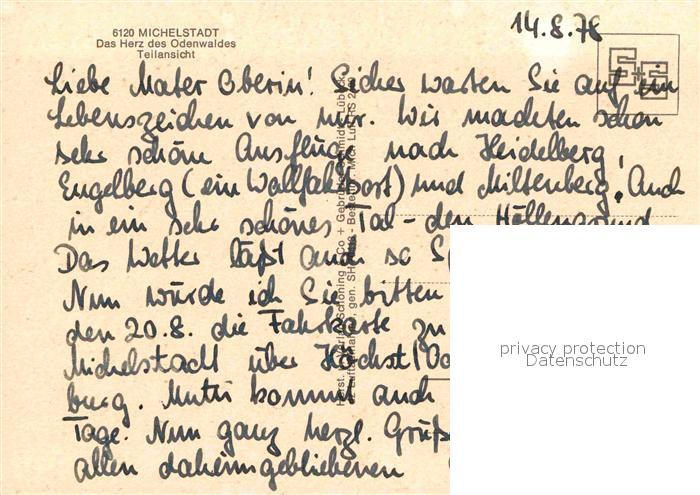 14.8.78
6120 MICHELSTADT
Das Herz des Odenwaldes
Teilansicht
Liebe Mater Oberin! Sicher warten Sie auf ein
Lebenszeichen von mir. Wir machten schon
sehr schöne Ausflug nach Heidelberg,
Engelberg (ein Wallfahrtsort) und Miltenberg. Auch
in ein sehr schönes Tal - den Höllengrund
Das Wetter läßt auch so
Nun würde ich Sie bitten
den 20.8. die Fahrkarte zu
Michelstadt über Höchst/
burg. Mutti kommt auch
Tage. Nun ganz herzl. Grüß
allen daheimgebliebenen
privacy protection
Datenschutz